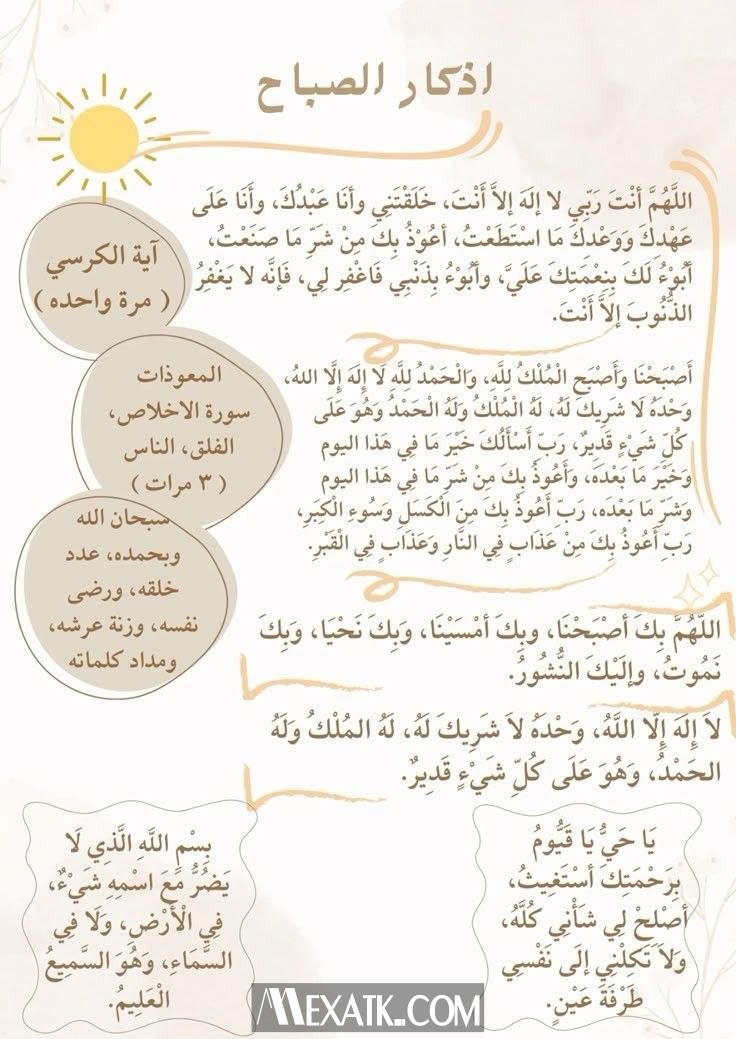 اذكار الصباح
اللَّهُمَّ أَنْتَ رَبِّي لا إلَهَ إلاَّ أَنْتَ، خَلَقْتَنِي وأنَا عَبْدُكَ، وأَنَا عَلَى
عَهْدِكَ وَوَعْدِكَ مَا اسْتَطَعْتُ، أعُوْذُ بِكَ مِنْ شَرِّ مَا صَنَعْتُ،
أَبُوْءُ لَكَ بِنِعْمَتِكَ عَلَيَّ، وأَبُوْءُ بِذَنْبِي فَاغْفِر لِي، فَإنَّه لا يَغْفْرُ
الذُّنُوبَ إلاَّ أَنْتَ.
آية الكرسي
( مرة واحده )
أَصْبَحْنَا وَأَصْبَحِ الْمُلْكُ لِلَّهِ، وَالْحَمْدُ لِلَّهِ لَا إِلَهَ إِلَّا اللهُ،
وَحْدَهُ لَا شَرِيكَ لَهُ، لَهُ الْمُلْكُ وَلَهُ الْحَمْدُ وَهُوَ عَلَى
كُلِّ شَيْءٍ قَدِيرٌ، رَبِّ أَسْأَلُكَ خَيْرَ مَا فِي هَذَا اليوم
وَخَيْرَ مَا بَعْدَهُ، وَأَعُوذُ بِكَ مِنْ شَرِّ مَا فِي هَذَا اليوم
وَشَرِّ مَا بَعْدَه، رَبِّ أَعُوذُ بِكَ مِنَ الْكَسَلِ وَسُوءِ الْكِبَرِ،
رَبِّ أَعُوذُ بِكَ مِنْ عَذَابٍ فِي النَّارِ وَعَذَابٍ فِي الْقَبْرِ.
المعوذات
سورة الاخلاص،
الفلق، الناس
( ٣ مرات )
سبحان الله
وبحمده، عدد
خلقه، ورضى
نفسه، وزنة عرشه،
ومداد كلماته
اللّهُمَّ بِكَ أصْبَحْنَا، وبِكَ أمْسَيْنَا، وَبِكَ نَحْيَا، وَبِكَ
نَمُوتُ، وإلَيْكَ النُّشُورُ.
لاَ إلَهَ إِلّا اللَّهُ، وَحْدَهُ لاَ شَرِيكَ لَهُ، لَهُ المُلْكُ وَلَهُ
الحَمْدُ، وَهُوَ عَلَى كُلِّ شَيْءٍ قَدِيرٌ.
يَا حَيُّ يَا قَيُّومُ
بِرَحْمَتِكَ أسْتَغِيثُ،
أصْلِحْ لِي شَأْنِي كُلَّهُ،
وَلاَ تَكِلْنِي إلَى نَفْسِي
طَرْفَةَ عَيْنٍ.
بِسْمِ اللَّهِ الَّذِي لَا
يَضُرُّ مَعَ اسْمِهِ شَيْءٌ،
فِي الْأَرْضِ، وَلَا فِي
السَّمَاءِ، وَهُوَ السَّمِيعُ
الْعَلِيمُ.
MEXATK.COM